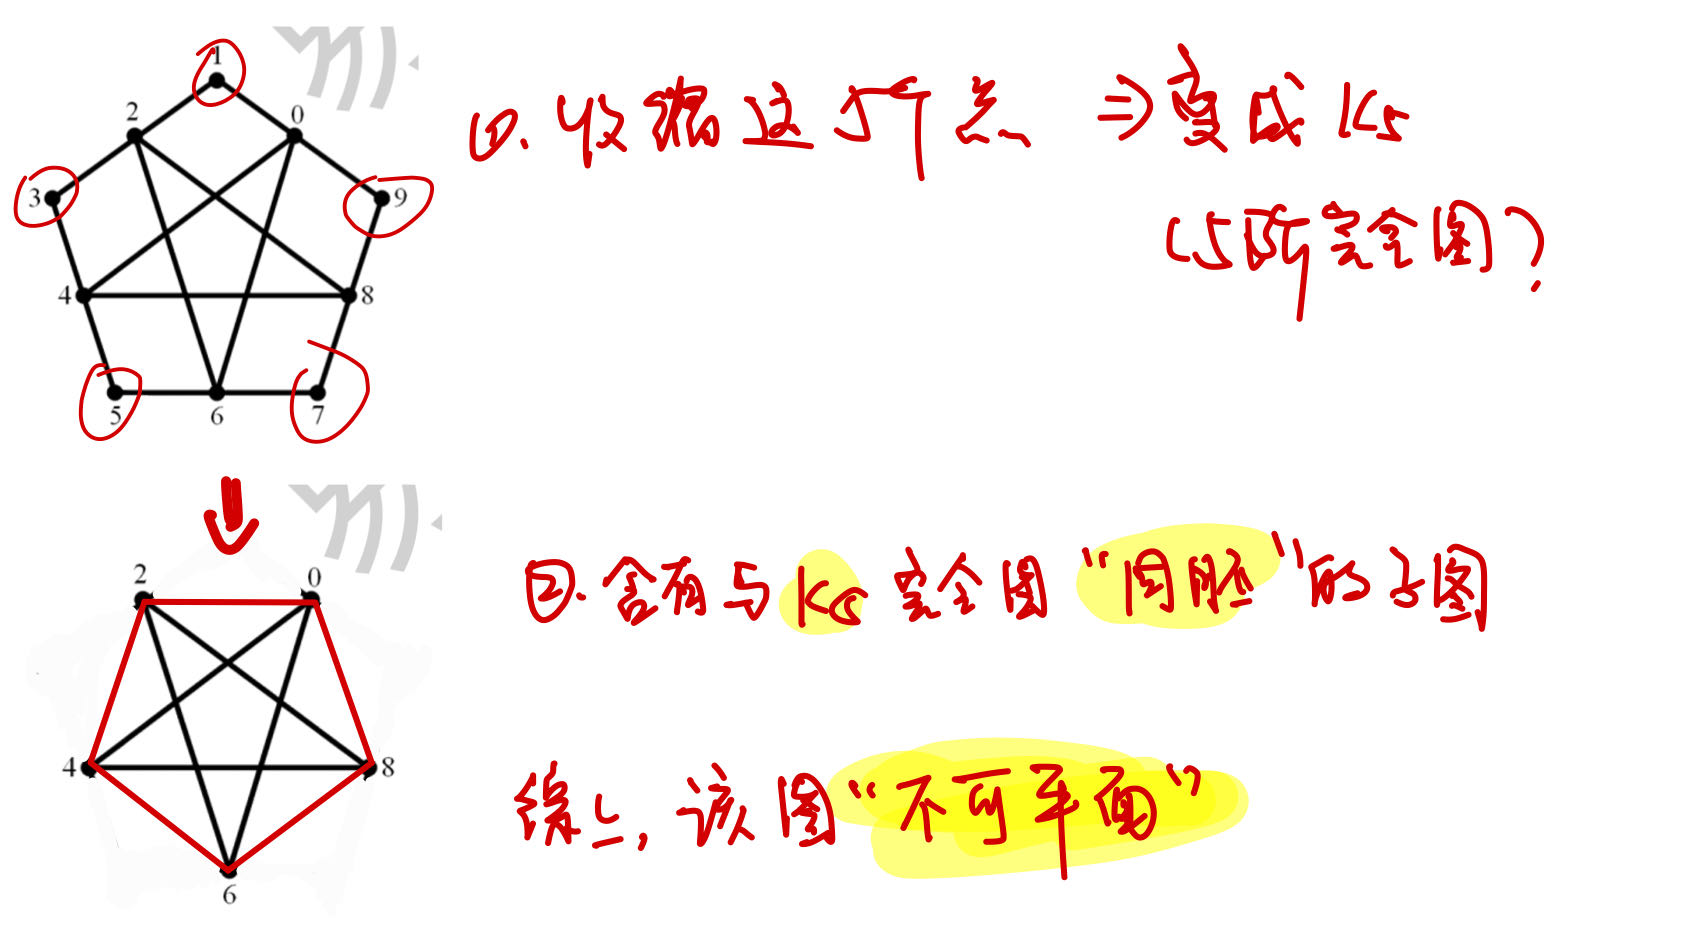 1
2
0
3
9
4
8
5
6
7
①. 收缩这5个点 ⇒ 变成 K5
(5阶完全图)
2
0
4
8
6
②. 含有与 K5 完全图 “同胚” 的子图
综上, 该图 “不可平面”